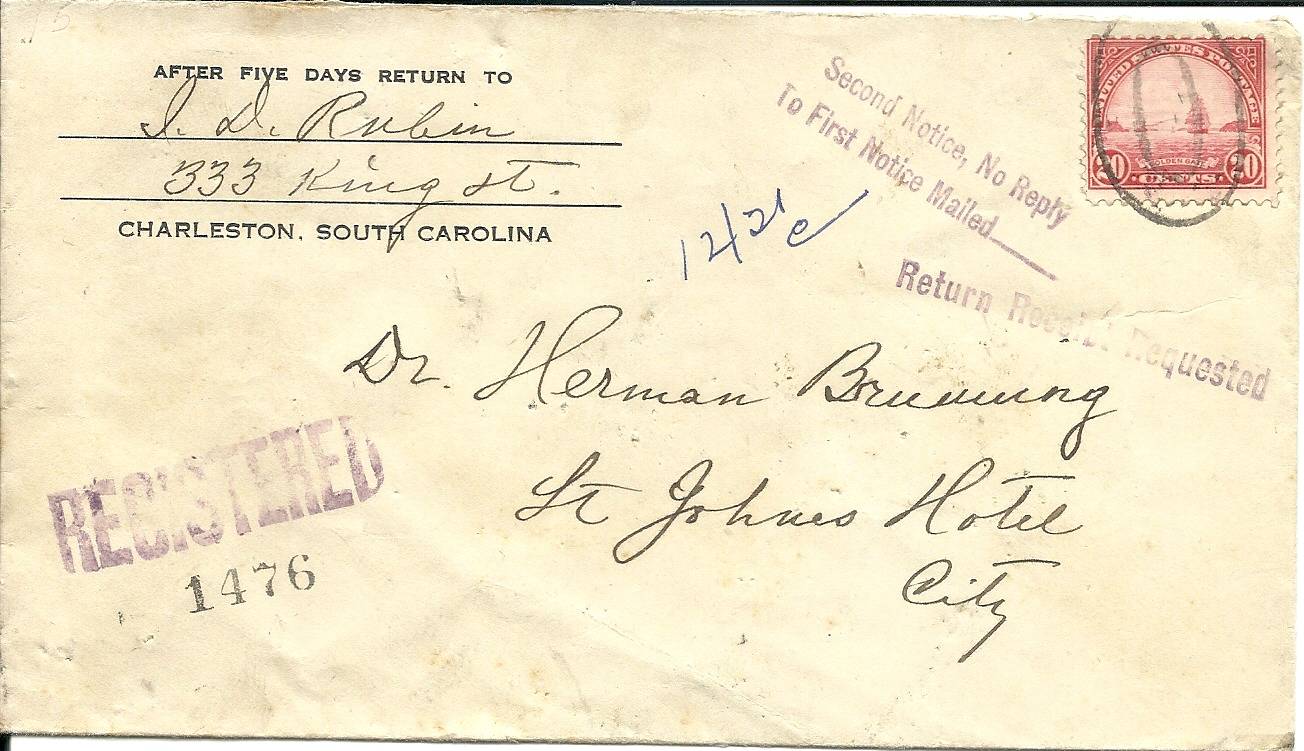 AFTER FIVE DAYS RETURN TO
I. D. Rubin
333 King St.
CHARLESTON, SOUTH CAROLINA
Second Notice, No Reply
To First Notice Mailed
12/21
Return Receipt Requested
UNITED STATES POSTAGE
GOLDEN GATE
20 CENTS 20
Dr. Herman
St Johns Hotel
City
REGISTERED
1476
15